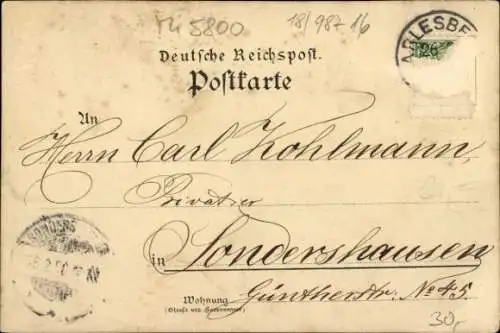 5800
18/987 16
ARLESBE
26
Deutsche Reichspost.
Postkarte
An
Herrn Carl Kohlmann,
Privatier
in Sondershausen
SONDERS
Wohnung Güntherstr. No 45.
(Straße und Hausnummer)
30,-